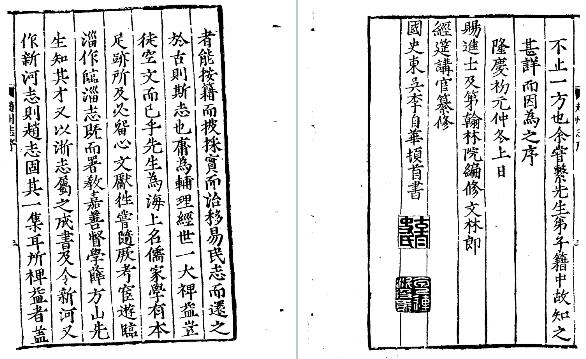 者能按籍而披採實而治移易民志而還之
於古則斯志也庸為輔理經世一大裨益豈
徒空文而已乎先生為海上名儒家學有本
足跡所及必留心文獻徃嘗隨厥考宦遊臨
淄作臨淄志既而署教嘉善督學薛方山先
生知其才又以浙志屬之成書及令新河又
作新河志則趙志固其一集耳所裨益者蓋
不止一方也余嘗繫先生第年籍中故知之
甚詳而因為之序
隆慶初元仲冬上日
賜進士及第翰林院編修文林郎
經筵講官纂修
國史東吳李自華頓首書